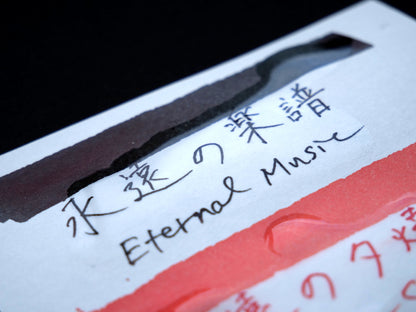 永遠の楽譜
Eternal Music
のタ